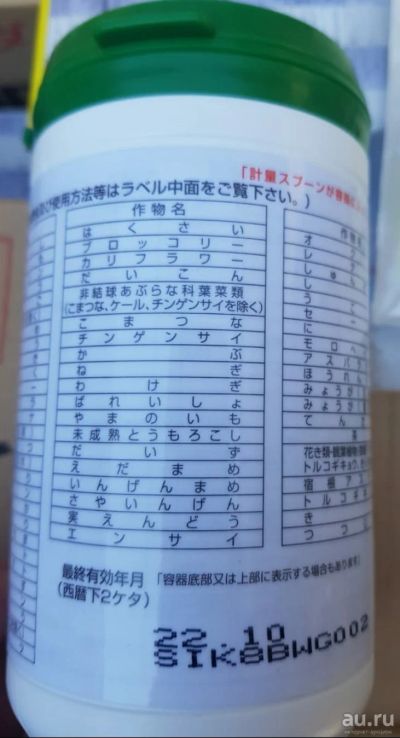 「計量スプーンが容器に
使用方法等はラベル中面をご覧下さい。)
作物名
はくさい
ブロッコリー
カリフラワー
だいこん
非結球あぶらな科葉菜類
(こまつな、ケール、チンゲンサイを除く)
こまつな
チンゲンサイ
かぶ
ねぎ
わけぎ
ばれいしょ
やまのいも
未成熟とうもろこし
だいず
えだまめ
いんげんまめ
さやいんげん
実えんどう
エンサイ
作物
オ
レ
し
し
う
セ
に
モロヘ
アスパ
ほうれ
みょうが
みょうが
てん
花き類・観葉植物
トルコギキョウ、き
宿根ア
トルコ
き
つつ
最終有効年月
(西暦下2ケタ)
「容器底部又は上部に表示する場合もあります」
22.10
SIK8BWG002
au.ru
интернет-аукцион